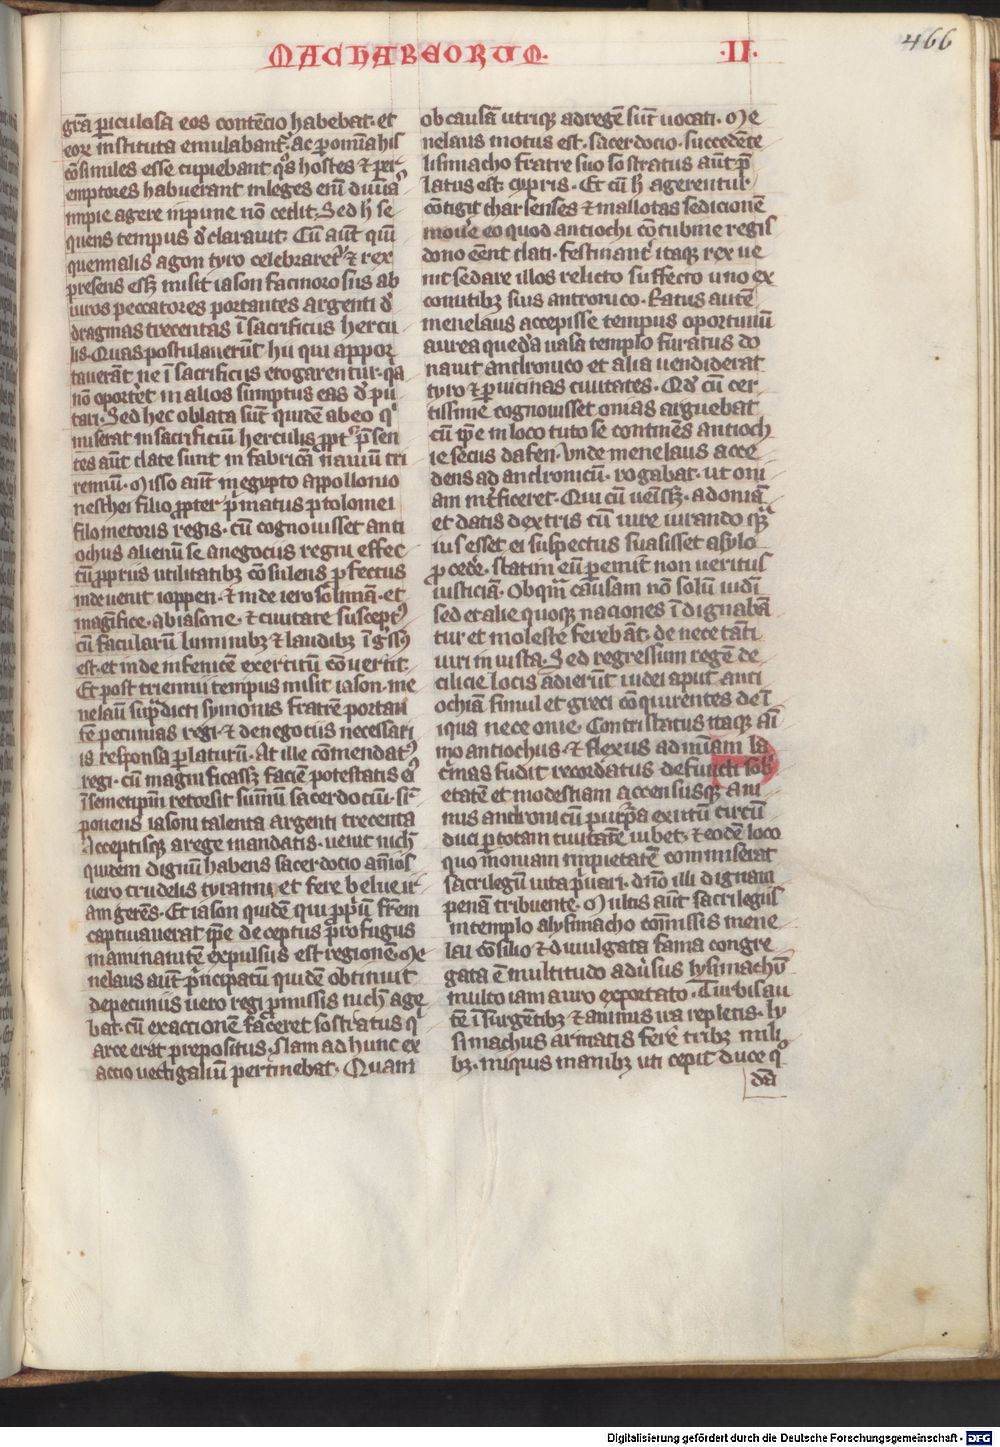 MACHABEORUM
·II·
466
gr̄a ꝑiculosa eos contēcio habebat· et
eoꝝ instituta emulabant᷑· ac ꝑ om̄ia his
cōsimiles esse cupiebant qͦs hostes ⁊ ꝑer
emptores habuerant in leges eni᷑ diuiā
impie agere inpune nō cedit· Sed h̄ se
quens tempus dᷓclarauit· Cū aūt quī
quennalis agon tyro celebraret᷑ ⁊ rex
presens essꝫ misit iason facinorosus ab
uiros peccatores portantes argenti dᷓ
dragmas trecentas ī sacrificus hercu
lis· Quas postulauerūt hii qui appor
tauerāt ne ī sacrificiis erogarentur· qͣ
nō oportʼet in alios sumptus eas dᷓpu
tari· Sed hec oblata sūt quidē ab eo qͥ
miserat in sacrificiū herculis ꝓpt᷑ p̄sen
tes aūt date sunt in fabricā nauiū tri
remiū· Misso aūt in egypto appollonio
nesthei filio ꝓpter pͥmatus ptolomei
filometoris regis· cū cognouisset anti
ochus alienū se a negociis regni effec
tū ꝓpriis utilitatibꝫ cōsulens ꝓfectus
inde uenit ioppen· ⁊ inde ierosolimā· et
magᷓnifice· ab iasone· ⁊ ciuitate susceptꝰ
cū facularū luminibꝫ ⁊ laudibꝫ īgssꝰ
est· et inde in fenicē exercitū cōuertit·
Et post trienni tempus misit iason· me
nelaū supᷓdicti symonis fratrē portan
tē pecunias regi· ⁊ de negotiis necessari
is responsa ꝑlaturū· At ille cōmendatꝰ
regi· cū magnificassꝫ faciē potestatis eiꝰ
ī semetipm̄ retorsit summū sacerdotiū· sr̄
ponens iasoni talenta argenti trecenta
Acceptisqꝫ a rege mandatis· uenit nichˡ
quidem dignū habens sacerdotio a᷑nios
uero crudelis tyranni et fere belue ir
am gerēs· Et iason quidē qui ꝓpͥū fr̄em
captiuauerat ip̄e deceptus ꝓfugus
in amanitē expulsus est regionē· Me
nelaus aūt pͥncipatū quidē obtinuit
de pecuniis uero regi ꝓmissis nichˡ age
bat· cū exaccionē faceret sostratus qͥ
arce erat prepositus· Nam ad hunc ex
actio uectigaliū pertinebat· Quam
ob causā utriqꝫ ad regē sūt uocati· Me
nelaus motus est· sacerdocio· succedēte
lisimacho fratre suo sostratus aūt p̄
latus est cypris· Et cū h̄ agerentur·
cōtigit tharsenses ⁊ mallotas sedicionē
mouʼe eo quod antiochi cōtubine regis
dono eēnt dati· Festinant᷑ itaqꝫ rex ue
nit sedare illos relicto suffecto uno ex
comitibꝫ suis antronico· Ratus autē
menelaus accepisse tempus oportunū
aurea quedʼa uasa templo furatus do
nauit andronico et alia uendiderat
tyro ⁊ ꝑ uicinas ciuitates· Qdʼ cū cer
tissime cognouisset onias arguebat
cū ip̄e in loco tuto se continēs antioch
ie secus dafen· Vnde menelaus acce
dens ad andronicū· rogabat· ut oni
am int᷑ficeret· Qui cū uēissꝫ· ad oniā
et datis dextris cū iure iurando qͣꝫ
iuis esset ei suspectus suasisset asylo
ꝓcedʼe· statim eū ꝑemit non ueritus
iusticiā· Ob qm̄ causam nō solū iudī
sed et alie quoqꝫ naciones īdignabā
tur et moleste ferebāt· de nece tāti
uiri iniusta· Sed regressum regē de
cilicie locis adierūt iudei aput anti
ochiā simul et greci cōquirentes de ī
iqua nece onie· Contristatus itaqꝫ aī
mo antiochus· ⁊ flexus ad miam la
cͥmas fudit recordatus defuncti sobͥ
etatē et modestiam accensusqꝫ ani
mus andronicū purpᷓa exutū circū
duci ꝑ totam ciuitatē iubet· ⁊ eodē loco
quo īoniam impietatē commiserat
sacrilegū uita pͥuari· dn̄o illi dignam
penā tribuente· Multis aūt sacrilegiis
in templo a lysimacho cōmissis mene
lai cōsilio ⁊ diuulgata fama congre
gata ē multitudo aduʼsus lysimachū
multo iam auro exportato· Turbis au
tē īsurgentibꝫ ⁊ animis ira repletis· ly
simachus armatis fere tribꝫ mili
bꝫ· iniquis manibꝫ uti cepit duce qͦ
dā
Digitalisierung gefördert durch die Deutsche Forschungsgemeinschaft - DFG